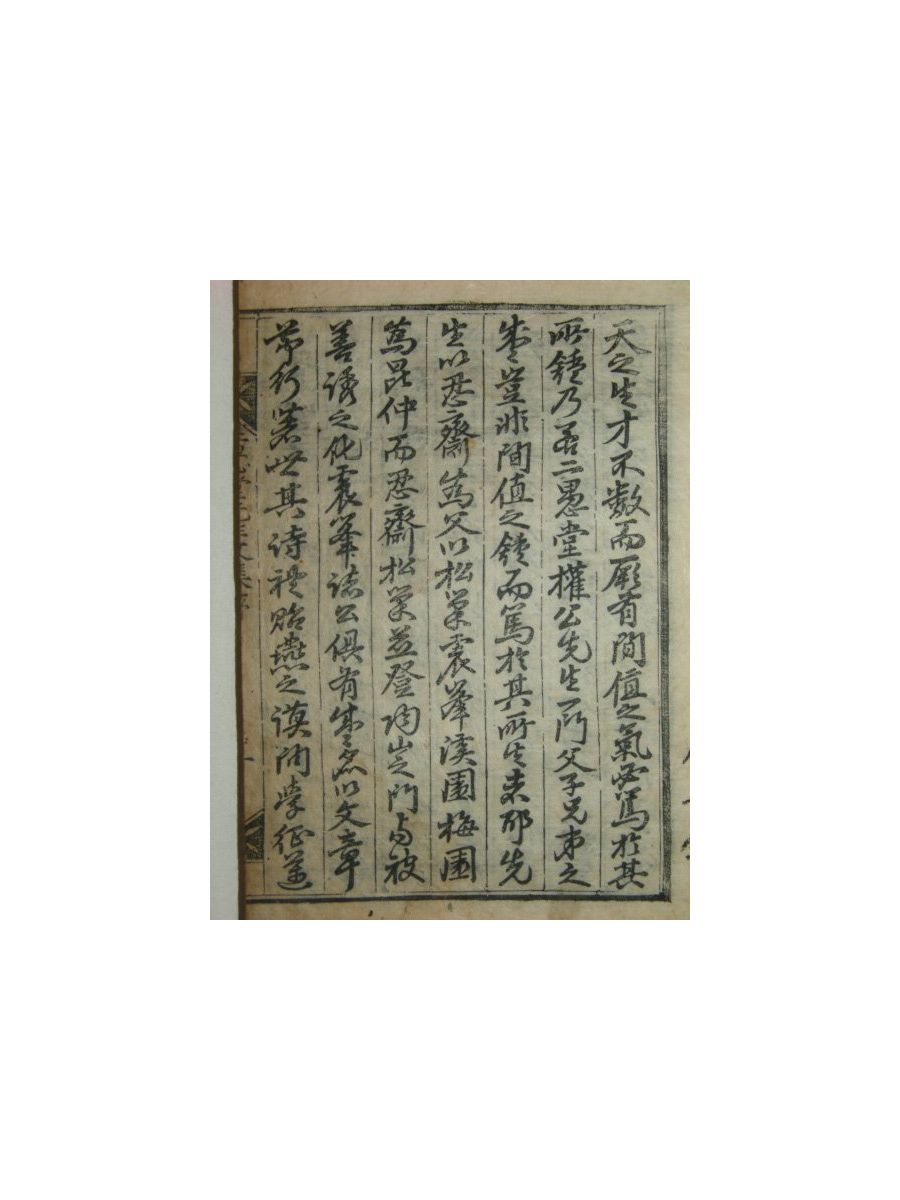 天之生才不數而厥有間值之氣必篤於其
所鍾乃若二愚堂權公先生一門父子兄弟之
盛豈非間值之鍾而篤於其所生者耶先
生以忍齋為父以松巢震峯溪園梅園
為昆仲而忍齋松巢並登陶山之門與被
善誘之化震峯諸公俱有盛名以文章
節行著世其詩禮貽燕之謨問學征邁